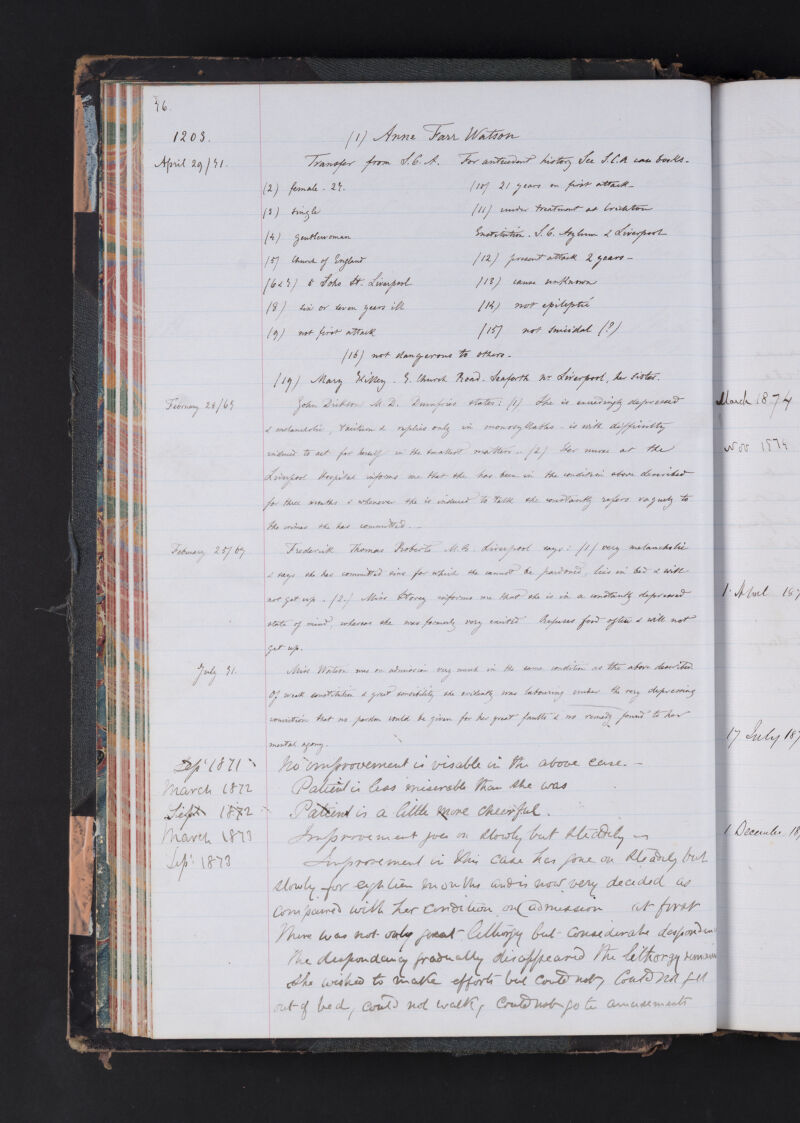 76.
1203. (1) Anne Farr Watson
April 29/71. Transfer from S.C.A. For antecedent history See S.C.A case books.
(2) female. 27. (10) 21 years on first attack
(3) Single (11) under treatment at Crichton
(4) gentlewoman Institution. S.C. Asylum & Liverpool
(5) Church of England (12) present attack 2 years
(6&7) 8 Soho St. Liverpool (13) cause unknown
(8) six or seven years ill (14) not epileptic
(9) not first attack (15) not suicidal (?)
(16) not dangerous to others.
(19) Mary Church Road. Seaforth nr Liverpool, her sister.
February John Dickson M.D. Dumfries states: (1) She is exceedingly depressed
& melancholic, taciturn & replies only in monosyllables - is with difficulty
induced to act for herself in the smallest matters. (2) Her nurse at the
Liverpool Hospital informs me that she has been in the condition above described
for three months & whenever she is induced to talk she constantly refers vaguely to
the crimes she has committed.
February 25/69 Frederick Thomas Roberts M.B. Liverpool says: (1) very melancholic
& says she has committed sins for which she cannot be pardoned, lies in bed & will
not get up. (2.) Miss informs me that she is in a constantly depressed
state of mind, whereas she was formerly very excited Refuses food often & will not
get up.
July 71. Miss Watson was on admission very much in the same condition as the above described
Of weak constitution & great sensibility she evidently was labouring under the very depressing
conviction that no pardon would be given for her great faults & no remedy found to her
mental agony.
Sep: 1871 No improvement is visable in the above case.
March 1872 Patient is less miserable than she was
Sept 1872 Patient is a little more cheerful.
March 1873 Improvement goes on slowly but steadily
Sep: 1873 Improvement in this case has gone on steadily but
slowly for eighteen months and is now very decided as
compaired with her condition on admission at first
there was not only great lethorgy but considerable despondency
the despondency gradually disappeared the lethorgy remained
She wished to make efforts but could not, Could not get
out of bed, could not walk, could not go to amusements
March 1874
Nov 1874
1. April 187
17 July 187
1 December 187